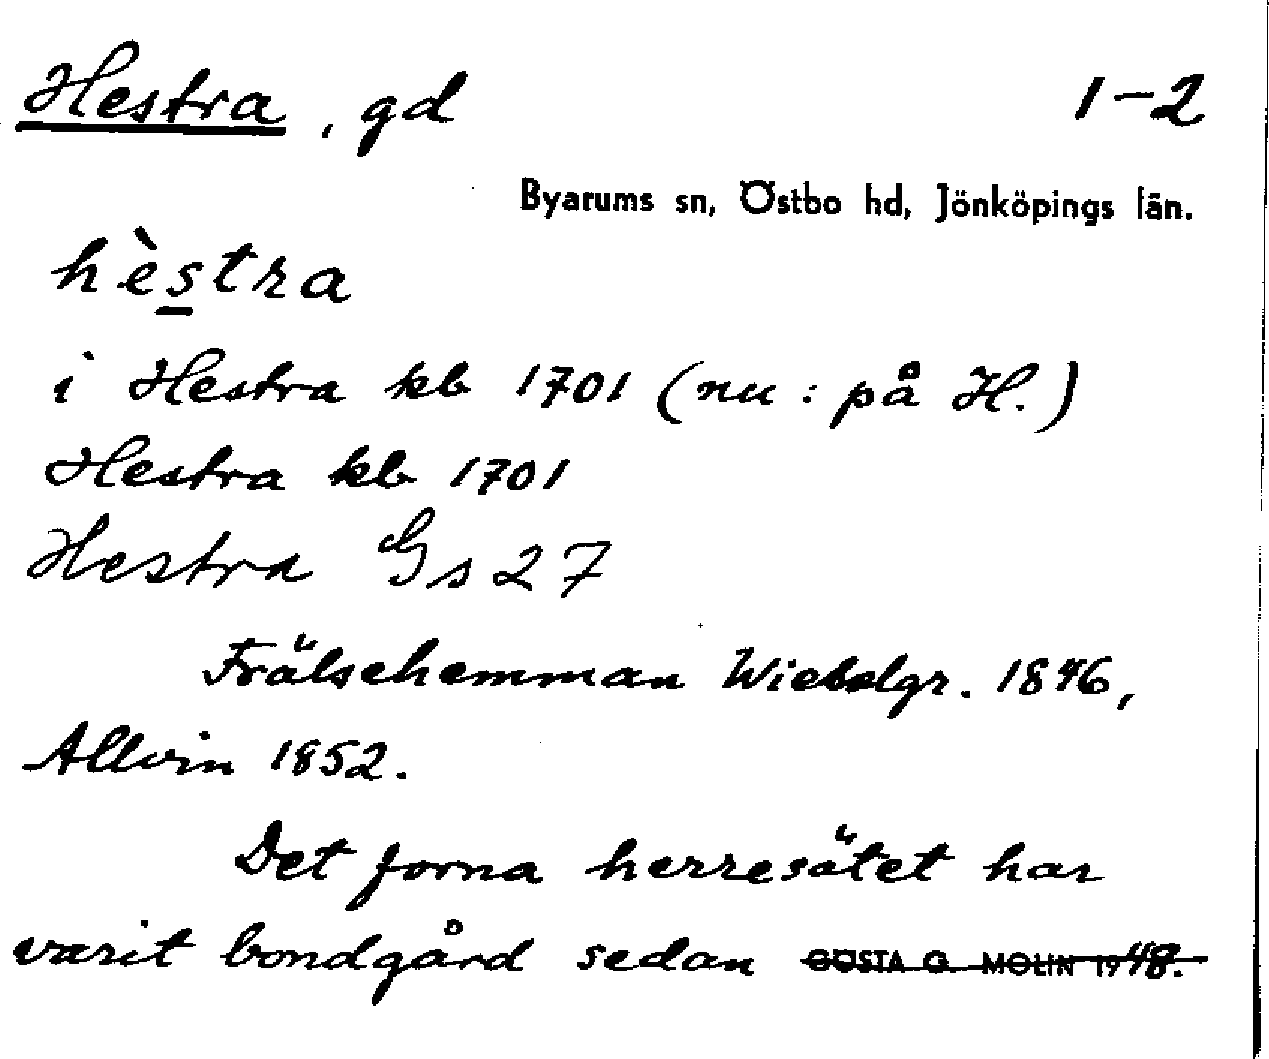 Hestra, gd 1-2
Byarums sn, Östbo hd, Jönköpings län.
hèstra
i Hestra kb 1701 (nu: på H.)
Hestra kb 1701
Hestra Gs 27
Frälsehemman Wieselgr. 1846,
Allvin 1852.
Det forna herresätet har
varit bondgård sedan GÖSTA G. MOLIN 1948.